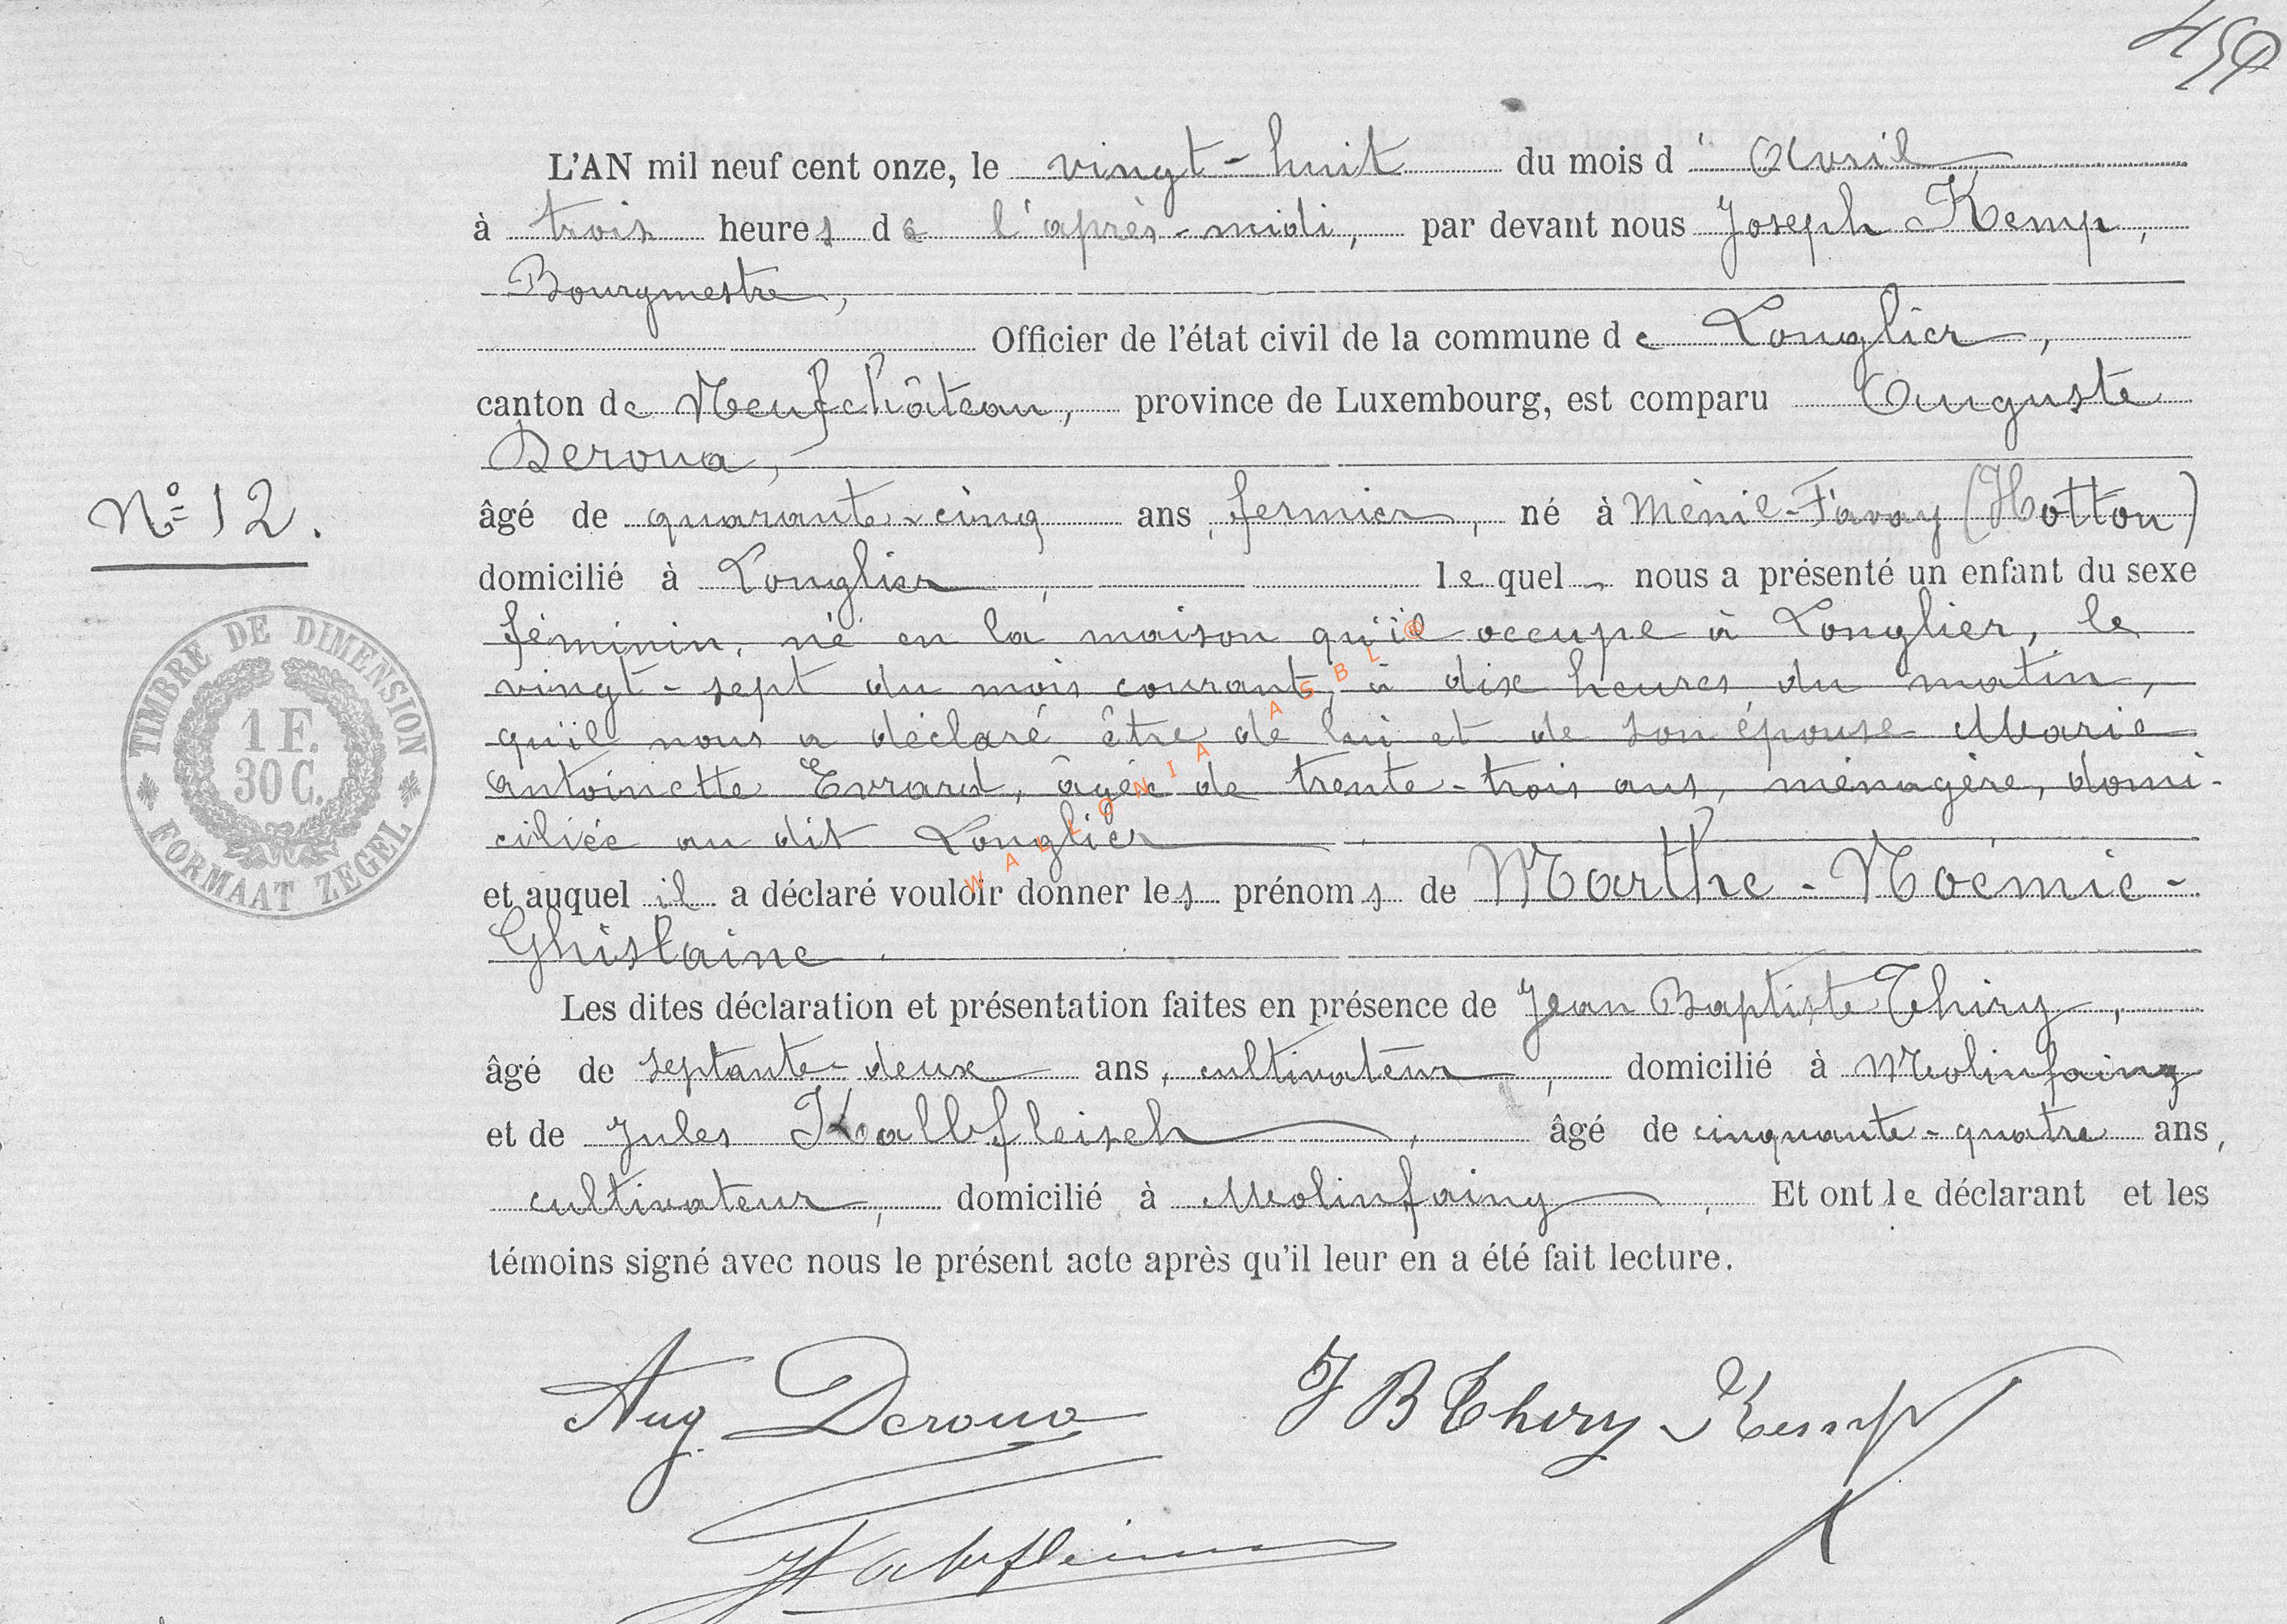 459
L'AN mil neuf cent onze, le vingt-huit du mois d'Avril
à trois heures de l'après-midi, par devant nous Joseph Kemp,
Bourgmestre,
Officier de l'état civil de la commune de Longlier,
canton de Neufchâteau, province de Luxembourg, est comparu Auguste
Deroua,
âgé de quarante-cinq ans, fermier, né à Ménil-Favay (Hotton)
domicilié à Longlier, lequel nous a présenté un enfant du sexe
féminin, né en la maison qu'il occupe à Longlier, le
vingt-sept du mois courant, à dix heures du matin,
qu'il nous a déclaré être de lui et de son épouse Marie
Antoinette Evrard, âgée de trente-trois ans, ménagère, domi-
ciliée au dit Longlier
et auquel il a déclaré vouloir donner les prénoms de Marthe-Noémie-
Ghislaine.
Les dites déclaration et présentation faites en présence de Jean Baptiste Thiry,
âgé de septante-deux ans, cultivateur, domicilié à Molinfaing
et de Jules Kalbfleisch, âgé de cinquante-quatre ans,
cultivateur, domicilié à Molinfaing, Et ont le déclarant et les
témoins signé avec nous le présent acte après qu'il leur en a été fait lecture.
N° 12.
TIMBRE DE DIMENSION
1 F.
30 C.
FORMAAT ZEGEL
WALLONIA ASBL ©
Aug Deroua
J B Thiry
Kemp